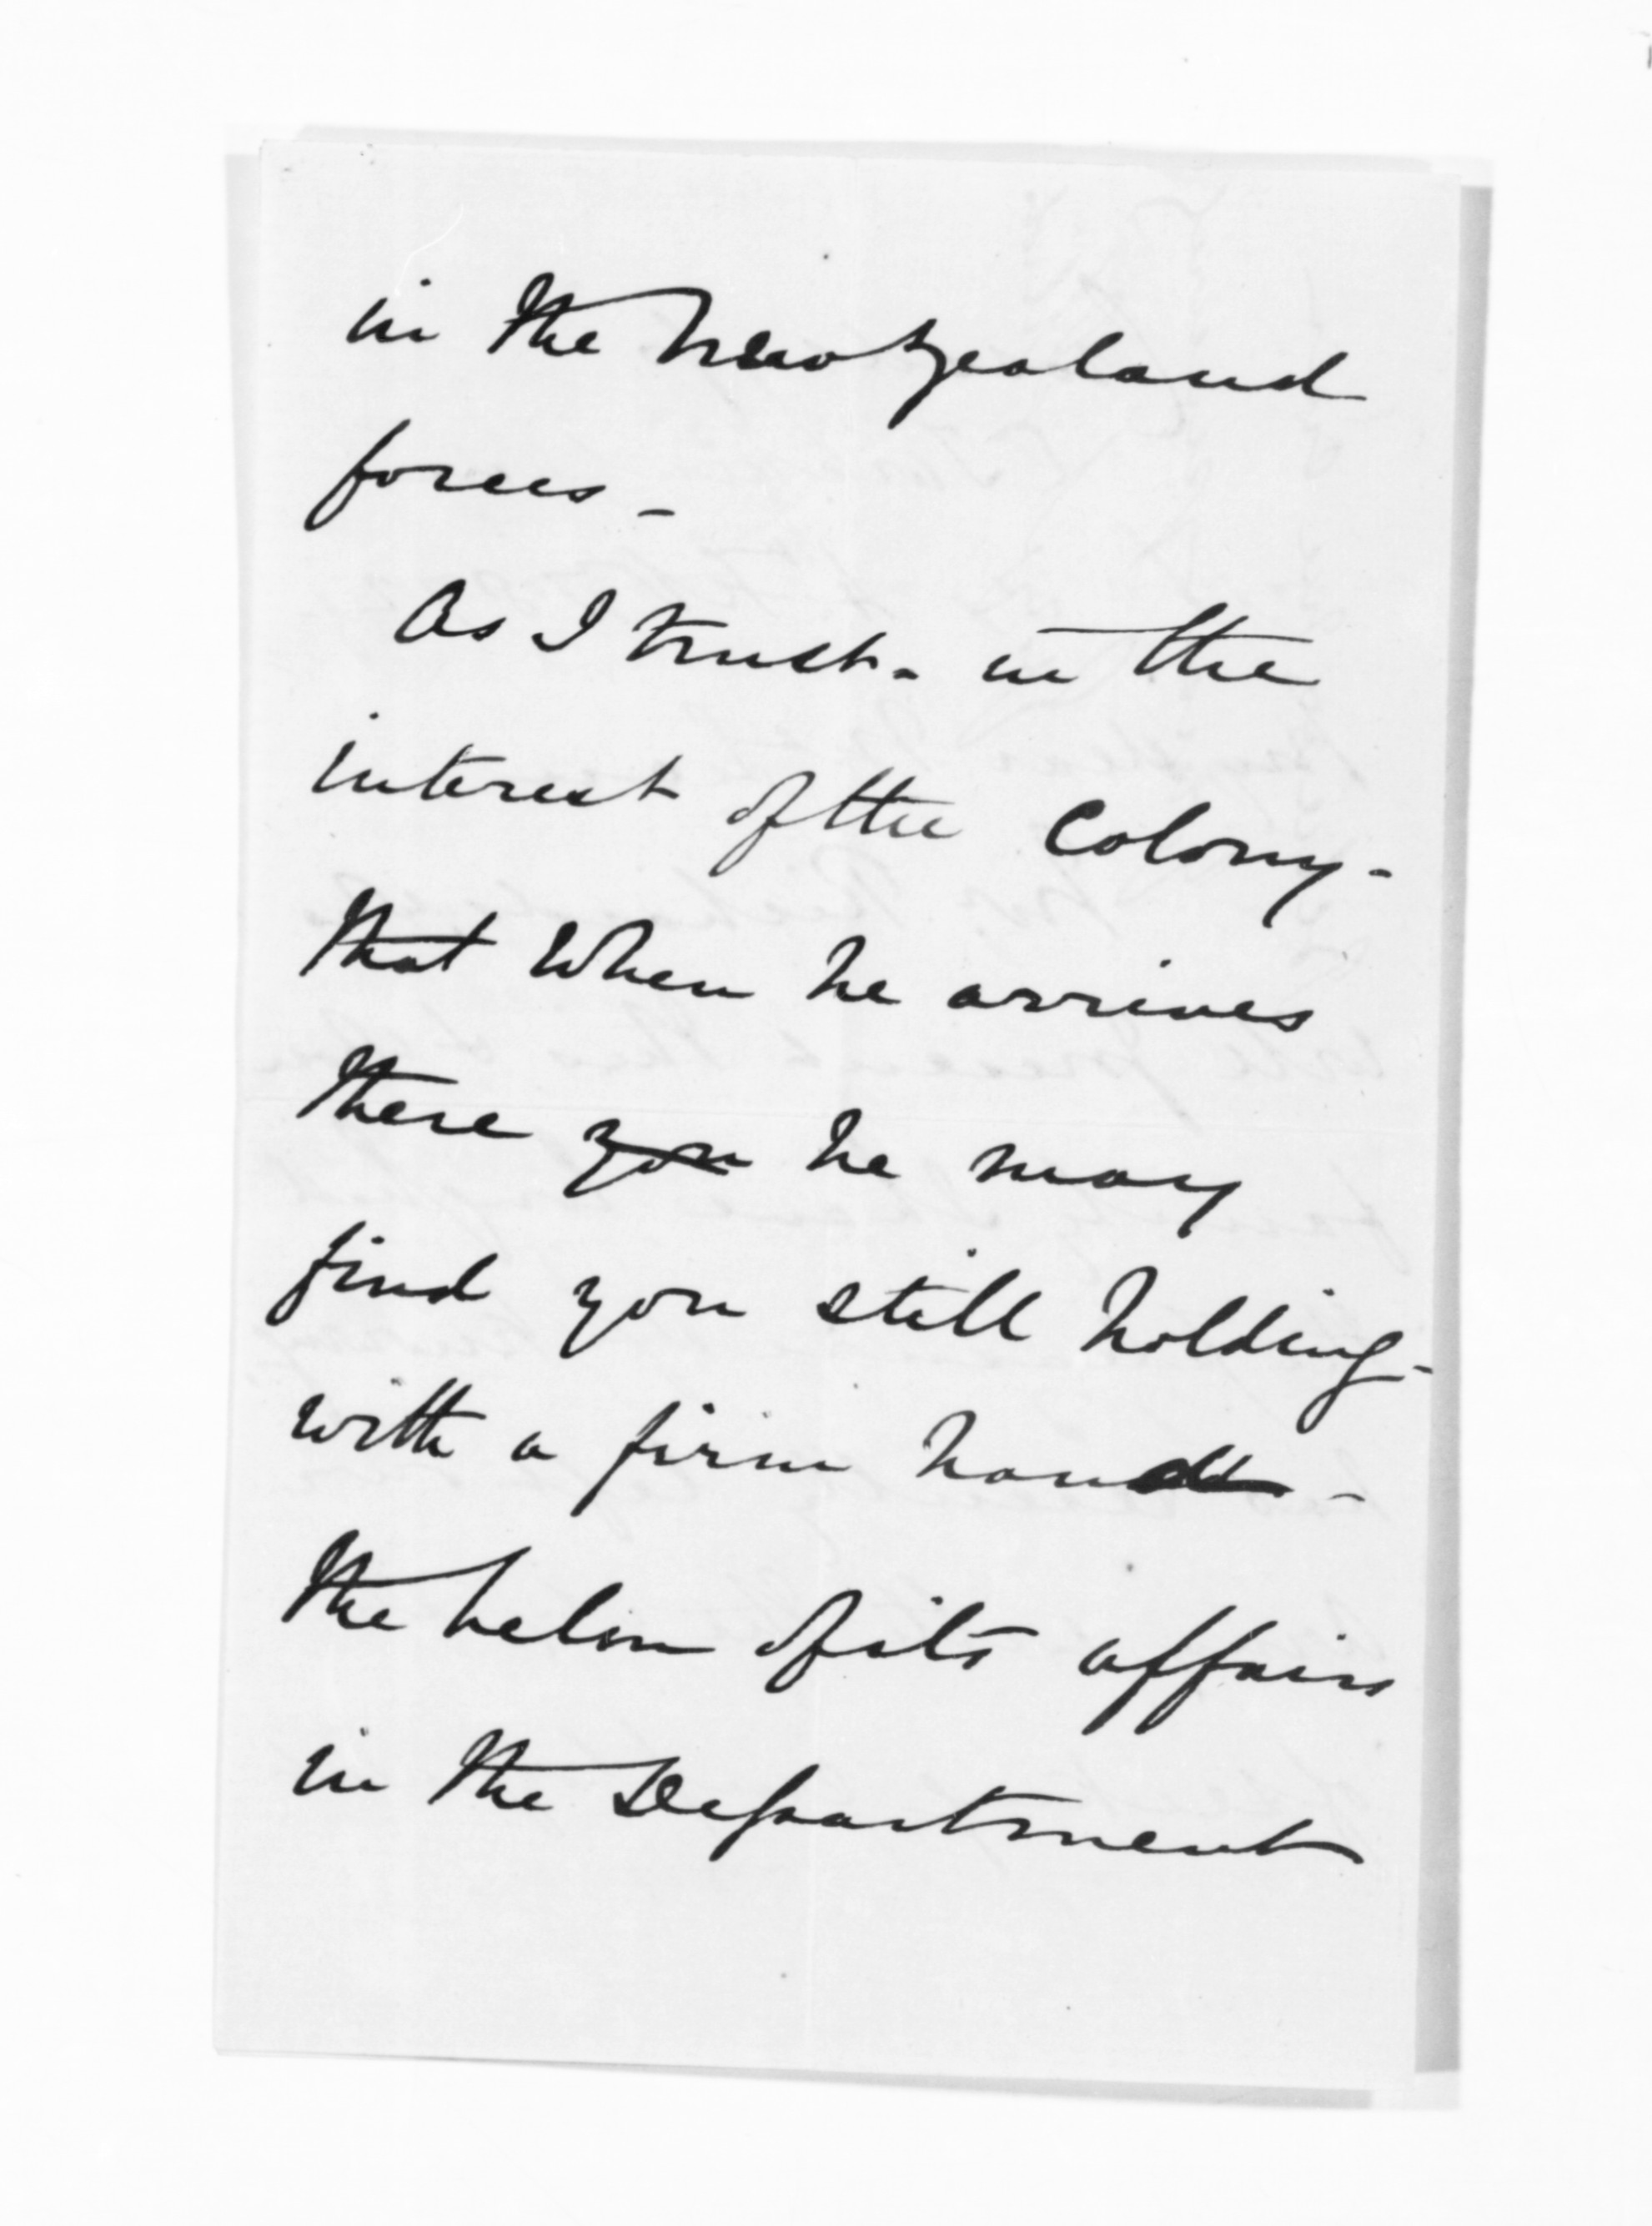 in the New Zealand
forces -
As I trust - in the
interest of the Colony -
that when he arrives
there you he may
find you still holding -
with a firm hand -
the helm of its affairs
in the Department